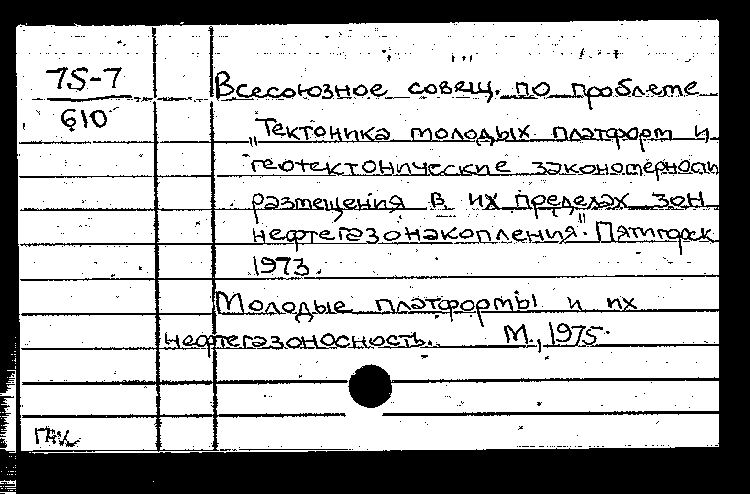 75-7
610
Всесоюзное совещ. по проблеме
„Тектоника молодых платформ и
геотектонические закономерности
размещения в их пределах зон
нефтегазонакопления". Пятигорск
1973.
Молодые платформы и их
нефтегазоносность. М., 1975.